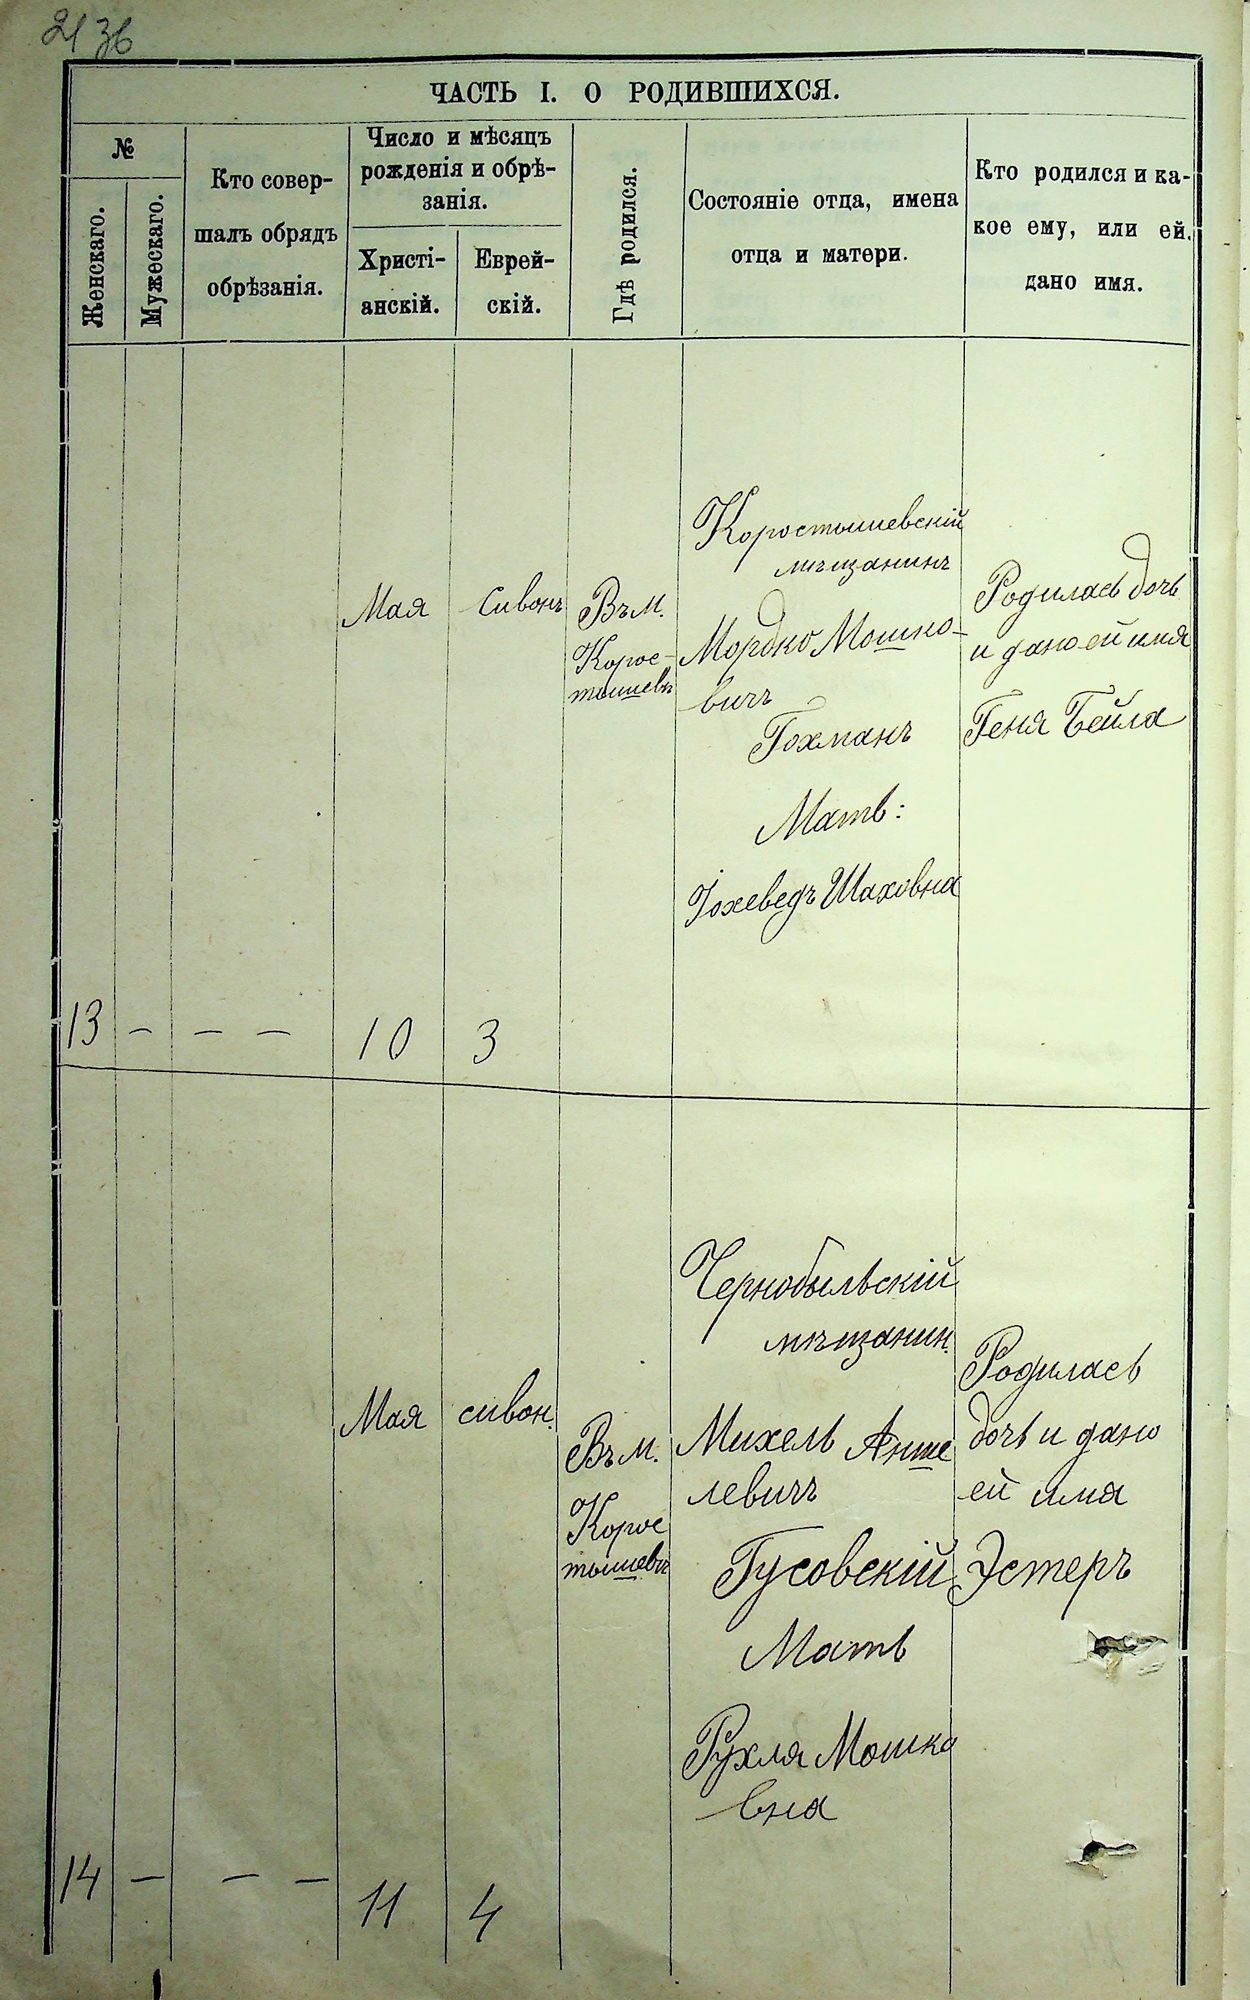 2136
ЧАСТЬ I. О РОДИВШИХСЯ.
№
Женскаго.
Мужескаго.
Кто совер-
шалъ обрядъ
обрѣзанія.
Число и мѣсяцъ
рожденія и обрѣ-
занія.
Христі-
анскій.
Еврей-
скій.
Гдѣ родился.
Состояніе отца, имена
отца и матери.
Кто родился и ка-
кое ему, или ей,
дано имя.
13
—
— —
Мая
10
Сивонъ
3
Въ м.
Корос-
тышевѣ
Коростышевскій
мѣщанинъ
Мордко Мошко-
вичъ
Гохманъ
Мать:
Іохеведъ Шаховна
Родилась дочь
и дано ей имя
Геня Бейла
14
—
— —
Мая
11
сивон.
4
Въ м.
Корос
тышевѣ
Чернобыльскій
мѣщанин.
Михель Анше
левичъ
Гусовскій
Мать
Рухля Мошко
вна
Родилась
дочь и дано
ей имя
Эстеръ